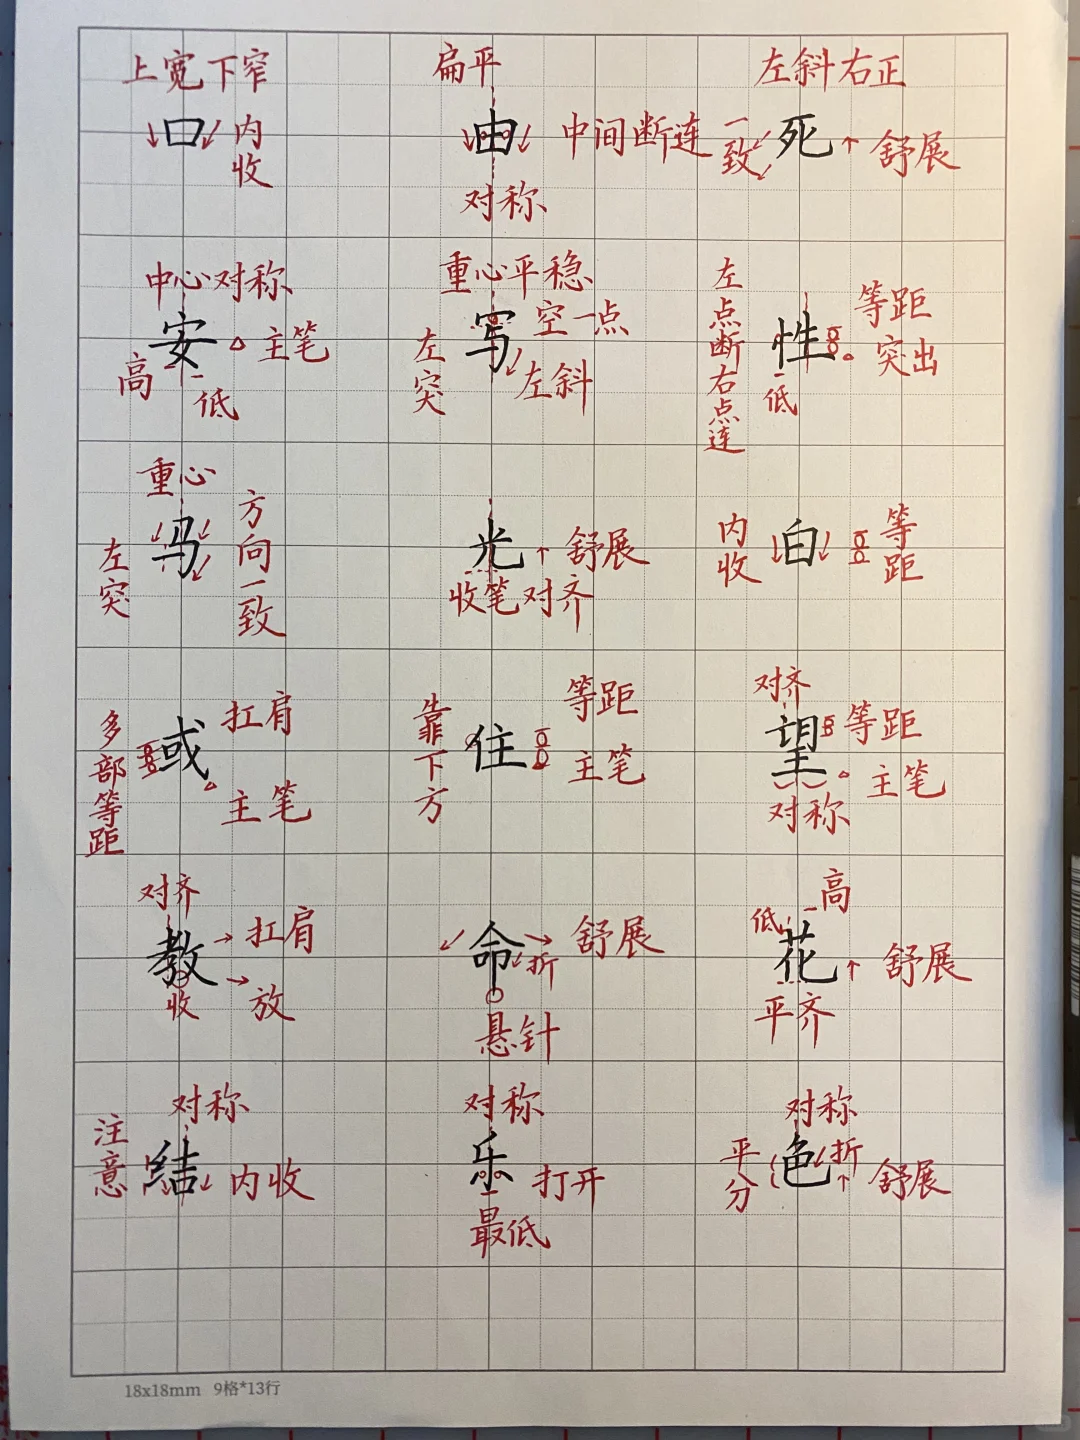 上宽下窄 扁平 左斜右正
口 内收 由 中间断连 一致 死 舒展
对称
中心对称 重心平稳 左点断右点连
安 主笔 左突 写 空一点 性 等距
高 低 左斜 低 突出
重心
左突 马 方向一致 光 舒展 内收 白 等距
收笔对齐
多部等距 或 扛肩 靠下方 住 等距 对齐 望 等距
主笔 主笔 主笔
对称
对齐 高
教 扛肩 命 舒展 低 花 舒展
收 放 折 平齐
悬针
对称 对称 对称
注意 结 内收 乐 打开 平分 色 折 舒展
最低
18x18mm 9格*13行